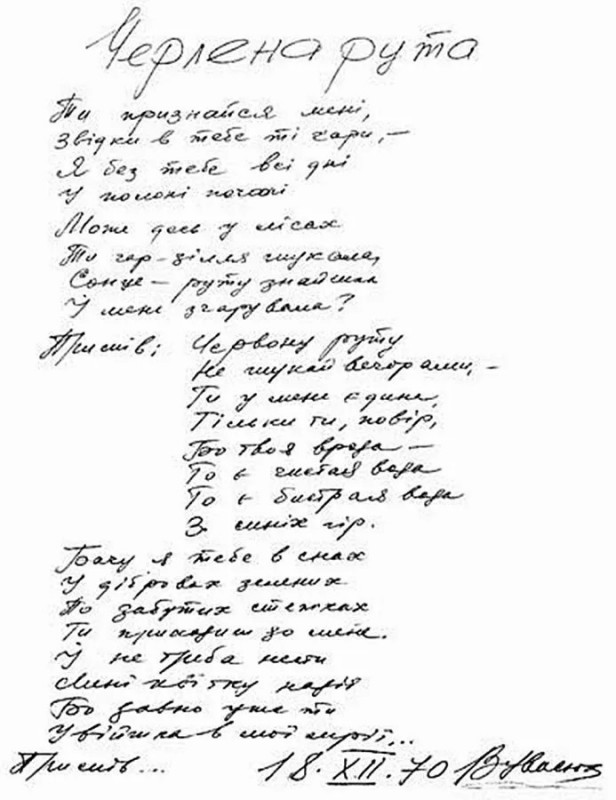 Черлена рута
Ти признайся мені,
Звідки в тебе ті чари, —
Я без тебе всі дні
У полоні печалі
Може десь у лісах
Ти чар-зілля шукала,
Сонце-руту знайшла
Й мене зчарувала?
Приспів: Червону руту
Не шукай вечорами, —
Ти у мене єдина,
Тільки ти, повір,
Бо твоя врода —
То є чистая вода
То є бистрая вода
З синіх гір.
Бачу я тебе в снах
У дібровах зелених
По забутих стежках
Ти приходиш до мене.
Й не треба нести
Мені квітку надії
Бо давно уже ти
Увійшла в мої мрії...
Приспів... 18.XII.70 В Івасюк